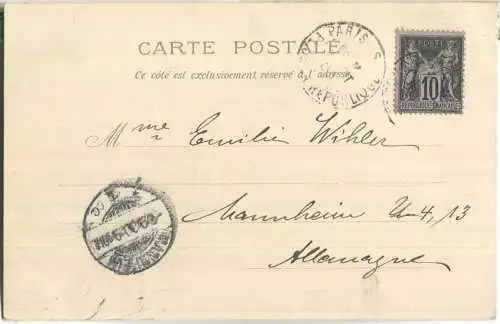 CARTE POSTALE
Ce côté est exclusivement réservé à l'adresse
PARIS
RÉPUBLIQUE
POSTE
10
REPUBLIQUE FRANÇAISE
Mme Emilie Wihler
Mannheim U 4, 13
Allemagne